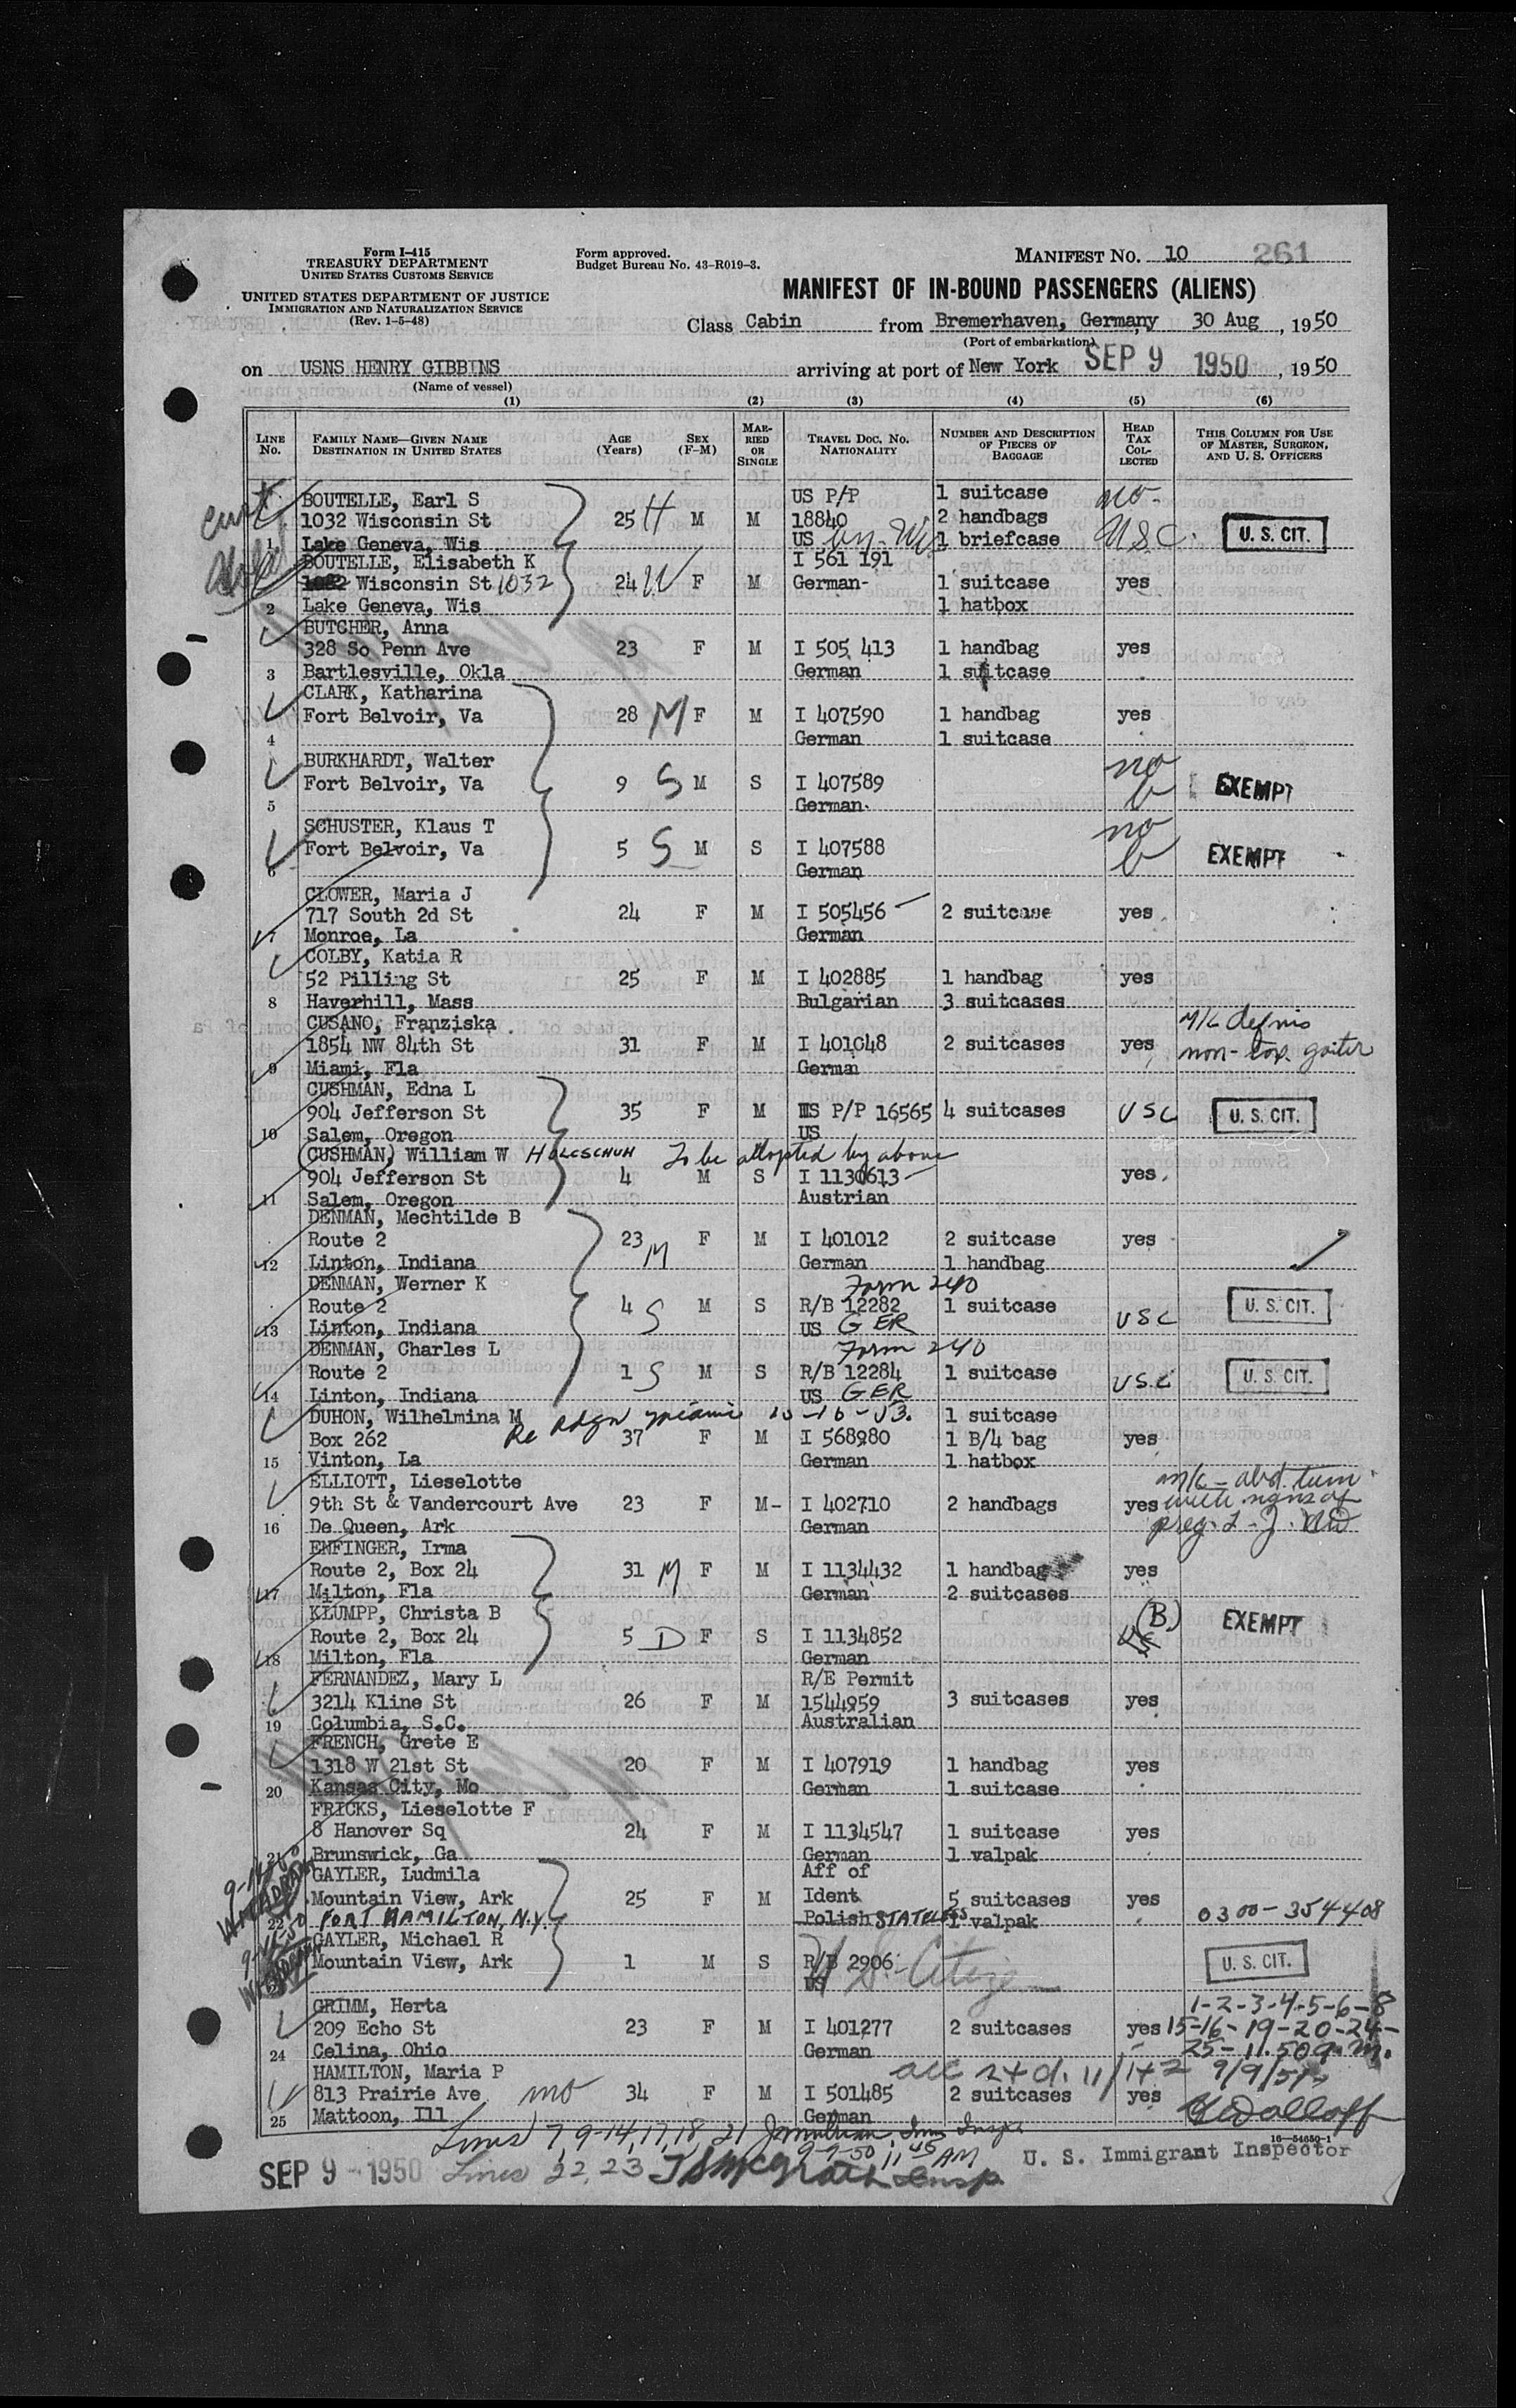 Form I-415
TREASURY DEPARTMENT
UNITED STATES CUSTOMS SERVICE
UNITED STATES DEPARTMENT OF JUSTICE
IMMIGRATION AND NATURALIZATION SERVICE
(Rev. 1-5-48)
Form approved.
Budget Bureau No. 43-R019-3.
MANIFEST NO. 10 261
MANIFEST OF IN-BOUND PASSENGERS (ALIENS)
Class Cabin from Bremerhaven, Germany 30 Aug, 1950
(Port of embarkation)
on USNS HENRY GIBBINS arriving at port of New York SEP 9 1950, 1950
(Name of vessel)
(1) (2) (3) (4) (5) (6)
LINE No. FAMILY NAME—GIVEN NAME DESTINATION IN UNITED STATES AGE (YEARS) SEX (F-M) MARRIED OR SINGLE TRAVEL DOC. NO. NATIONALITY NUMBER AND DESCRIPTION OF PIECES OF BAGGAGE HEAD TAX COLLECTED THIS COLUMN FOR USE OF MASTER, SURGEON, AND U. S. OFFICERS
BOUTELLE, Earl S US P/P 1 suitcase no-
1032 Wisconsin St 25 H M M 18840 2 handbags
1 Lake Geneva, Wis US 1 briefcase USC. U. S. CIT.
BOUTELLE, Elisabeth K I 561 191
1032 Wisconsin St 1032 24 W F M German- 1 suitcase yes
2 Lake Geneva, Wis 1 hatbox
BUTCHER, Anna
328 So Penn Ave 23 F M I 505 413 1 handbag yes
3 Bartlesville, Okla German 1 suitcase
CLARK, Katharina
Fort Belvoir, Va 28 M F M I 407590 1 handbag yes
4 German 1 suitcase
BURKHARDT, Walter no
Fort Belvoir, Va 9 S M S I 407589 b EXEMPT
5 German
SCHUSTER, Klaus T no
Fort Belvoir, Va 5 S M S I 407588 b EXEMPT
6 German
CLOWER, Maria J
717 South 2d St 24 F M I 505456 2 suitcase yes
7 Monroe, La German
COLBY, Katia R
52 Pilling St 25 F M I 402885 1 handbag yes
8 Haverhill, Mass Bulgarian 3 suitcases
CUSANO, Franziska M/C
1854 NW 84th St 31 F M I 401048 2 suitcases yes non-tox. goiter
9 Miami, Fla German
CUSHMAN, Edna L
904 Jefferson St 35 F M US P/P 16565 4 suitcases USC U. S. CIT.
10 Salem, Oregon US
(CUSHMAN) William W HOLCSCHUH To be adopted by above
904 Jefferson St 4 M S I 1130613 yes
11 Salem, Oregon Austrian
DENMAN, Mechtilde B
Route 2 23 M F M I 401012 2 suitcase yes
12 Linton, Indiana German 1 handbag
DENMAN, Werner K Form 240
Route 2 4 S M S R/B 12282 1 suitcase USC U. S. CIT.
13 Linton, Indiana US GER
DENMAN, Charles L Form 240
Route 2 1 S M S R/B 12284 1 suitcase USC U. S. CIT.
14 Linton, Indiana US GER
DUHON, Wilhelmina M Re Miami 10-16-53. 1 suitcase
Box 262 37 F M I 568980 1 B/4 bag yes
15 Vinton, La German 1 hatbox
ELLIOTT, Lieselotte m/c - abd. tum
9th St & Vandercourt Ave 23 F M- I 402710 2 handbags yes with signs of
16 De Queen, Ark German preg.
ENFINGER, Irma
Route 2, Box 24 31 M F M I 1134432 1 handbag yes
17 Milton, Fla German 2 suitcases
KLUMPP, Christa B (B)
Route 2, Box 24 5 D F S I 1134852 EXEMPT
18 Milton, Fla German
FERNANDEZ, Mary L R/E Permit
3214 Kline St 26 F M 1544959 3 suitcases yes
19 Columbia, S.C. Australian
FRENCH, Grete E
1318 W 21st St 20 F M I 407919 1 handbag yes
20 Kansas City, Mo German 1 suitcase
FRICKS, Lieselotte F
8 Hanover Sq 24 F M I 1134547 1 suitcase yes
21 Brunswick, Ga German 1 valpak
GAYLER, Ludmila Aff of
Mountain View, Ark 25 F M Ident 5 suitcases yes
22 FORT HAMILTON, N.Y. Polish STATELESS 1 valpak 0300-354408
GAYLER, Michael R
Mountain View, Ark 1 M S R/B 2906 U. S. Citizen U. S. CIT.
US
GRIMM, Herta 1-2-3-4-5-6-8
209 Echo St 23 F M I 401277 2 suitcases yes 15-16-19-20-24-
24 Celina, Ohio German 25-11.50 a.m.
HAMILTON, Maria P acc 24 d. 11/142 9/9/50
813 Prairie Ave 34 F M I 501485 2 suitcases yes
25 Mattoon, Ill German
Lines 7, 9-14, 17, 18, 21 Imm Inspr
9-9-50 11 45 AM
16—54650-1
U. S. Immigrant Inspector
SEP 9 - 1950 Lines 22, 23 J S McGrath Insp.